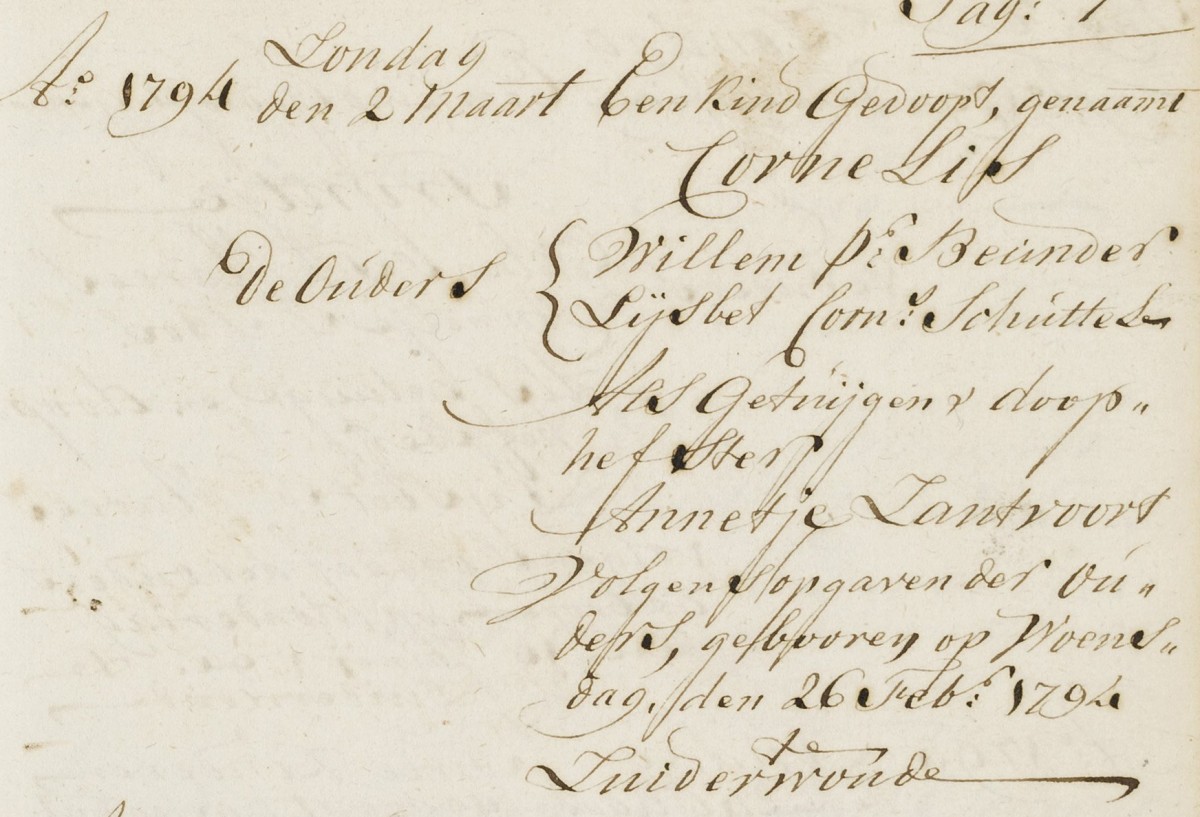 Pag: 1
Zondag
Ao: 1794 den 2 Maart Een kind Gedoopt, genaamt
Cornelips
De Ouders { Willem Pr: Beunder
Lijsbet Corns: Schuttele
Als Getuijgen & doop„
hefster
Annetje Zantvoort
Volgens opgaven der Ou„
ders, gebooren op Woens„
dag, den 26 Febr: 1794
te
Zuiderwoude